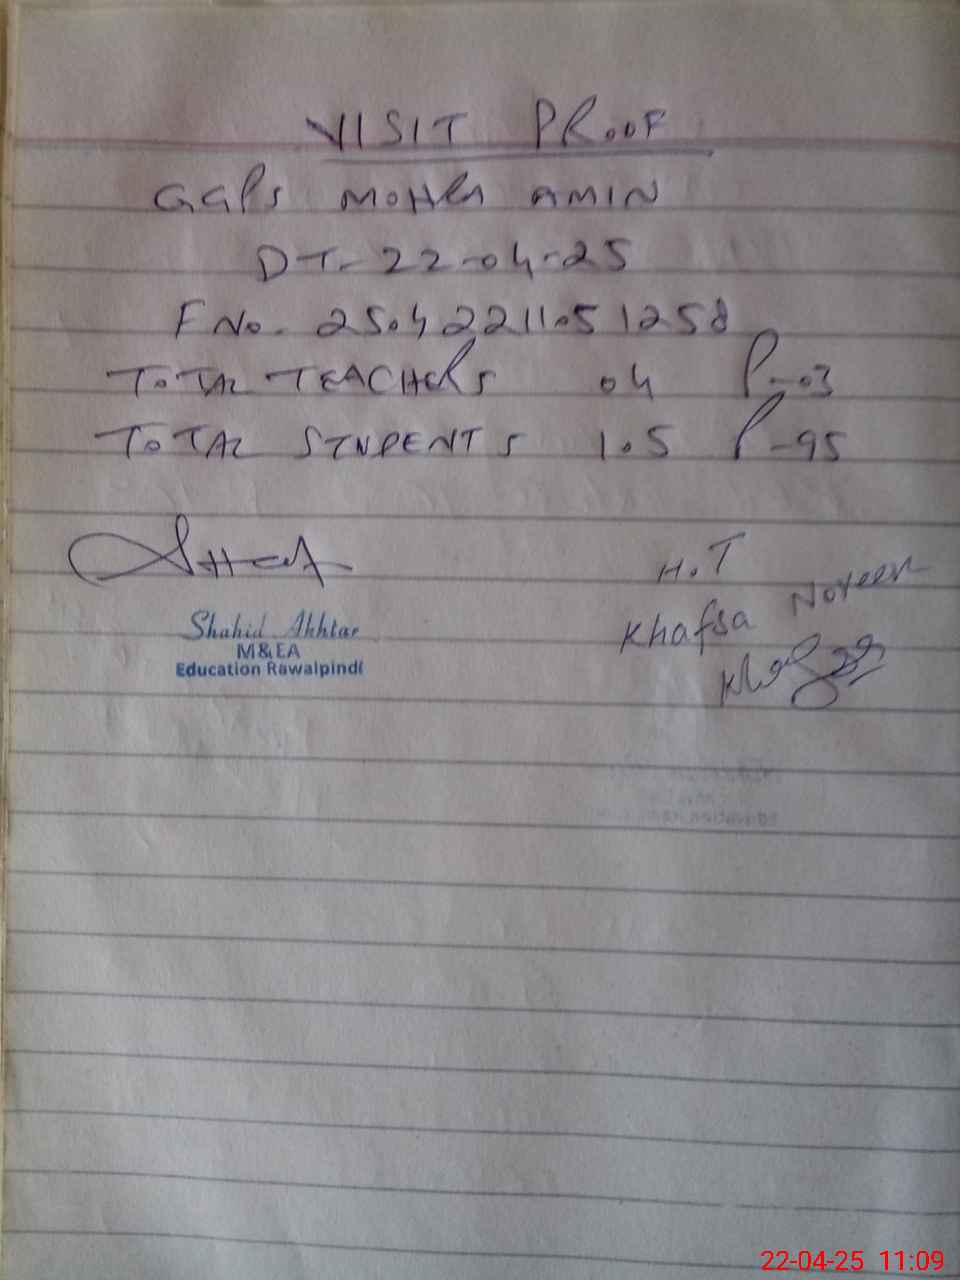 VISIT PROOF
GGPS MOHRA AMIN
DT-22-04-25
F No. 25042211051258
TOTAL TEACHERS 04 P-03
TOTAL STUDENTS 105 P-95
H.T
Khafsa Noreen
Shahid Akhtar
M&EA
Education Rawalpindi
22-04-25 11:09